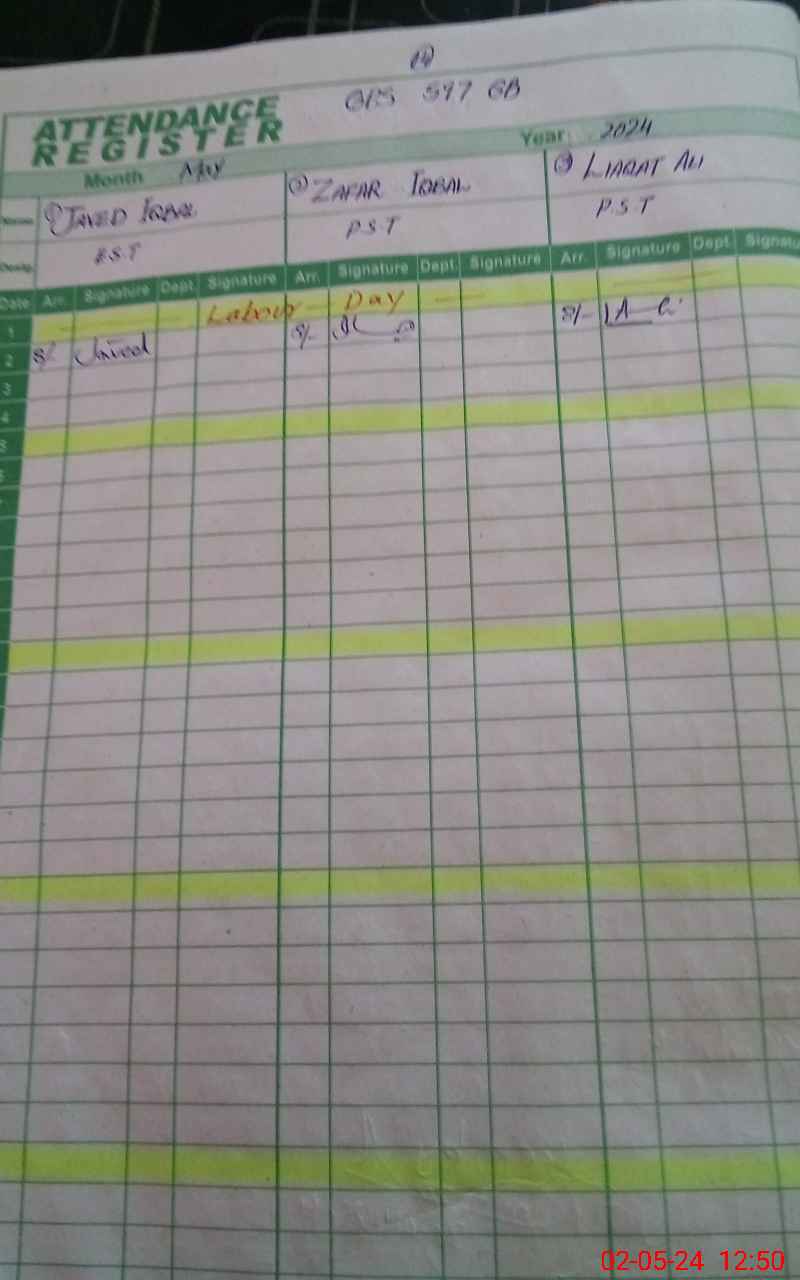 14
GPS 597 GB
ATTENDANCE
REGISTER
Month May Year 2024
Name ① JAVED IQBAL ② ZAFAR IQBAL ③ LIAQAT ALI
Desig. E.S.T P.S.T P.S.T
Date Arr. Signature Dept. Signature Arr. Signature Dept. Signature Arr. Signature Dept. Signatu
1 Labour Day
2 8/- Javed 8/- 8/-
3
4
5
02-05-24 12:50